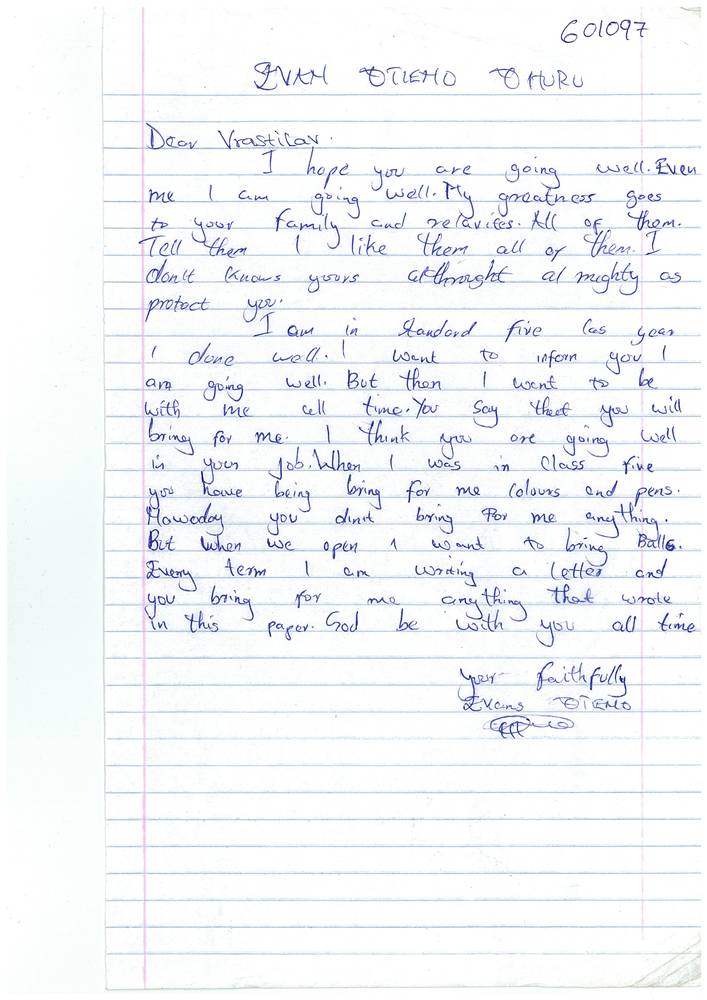 601097
EVAN OTIENO OHURU
Dear Vrastilav.
I hope you are going well. Even
me I am going well. My greatness goes
to your family and relavites. All of them.
Tell them I like them all of them. I
don't knows yours althrought al mighty as
protect you.
I am in standard five las year
I done well. I want to inform you I
am going well. But then I want to be
with me all time. You say that you will
bring for me. I think you are going well
in your job. When I was in Class five
you have being bring for me colours and pens.
Nowaday you dinit bring for me anything.
But when we open I want to bring Balls.
Every term I am writing a letter and
you bring for me anything that wrote
in this paper. God be with you all time
your faithfully
Evans OTIENO